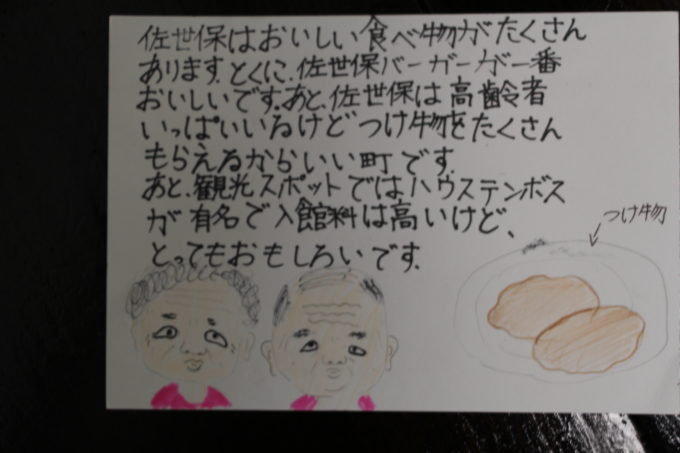 佐世保はおいしい食べ物がたくさん
あります。とくに、佐世保バーガーが一番
おいしいです。あと、佐世保は高齢者
いっぱいいるけどつけ物をたくさん
もらえるからいい町です
あと、観光スポットではハウステンボス
が有名で入館料は高いけど、
とってもおもしろいです。
つけ物